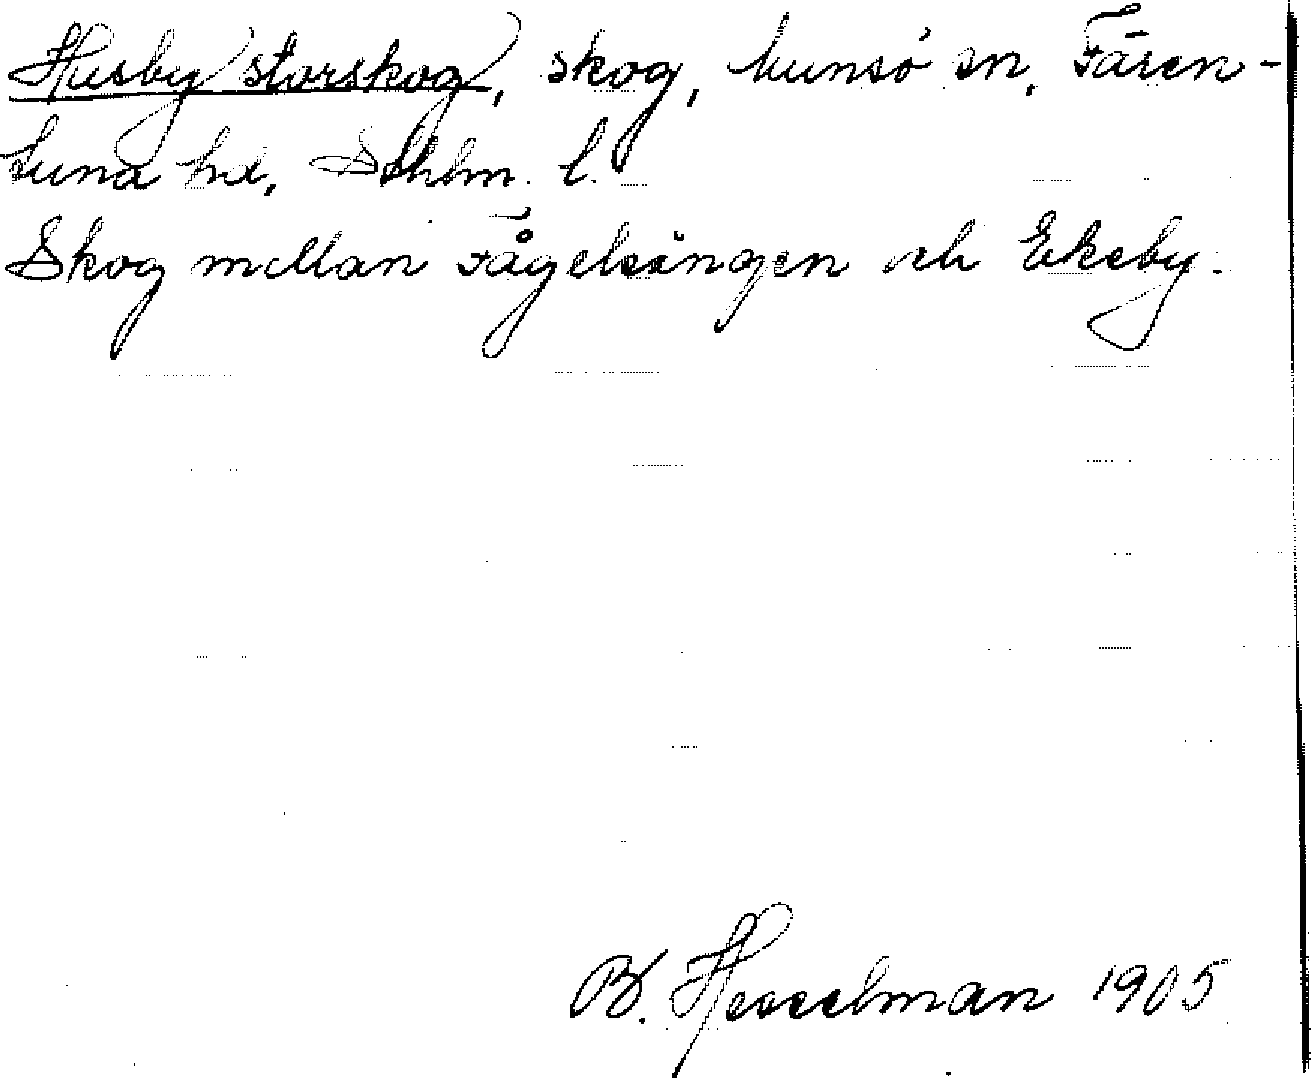 Husby storskog, skog, Munsö sn, Fären-
tuna hd, Sthlm. l.
Skog mellan Fågelsången och Ekeby.
B. Hesselman 1905